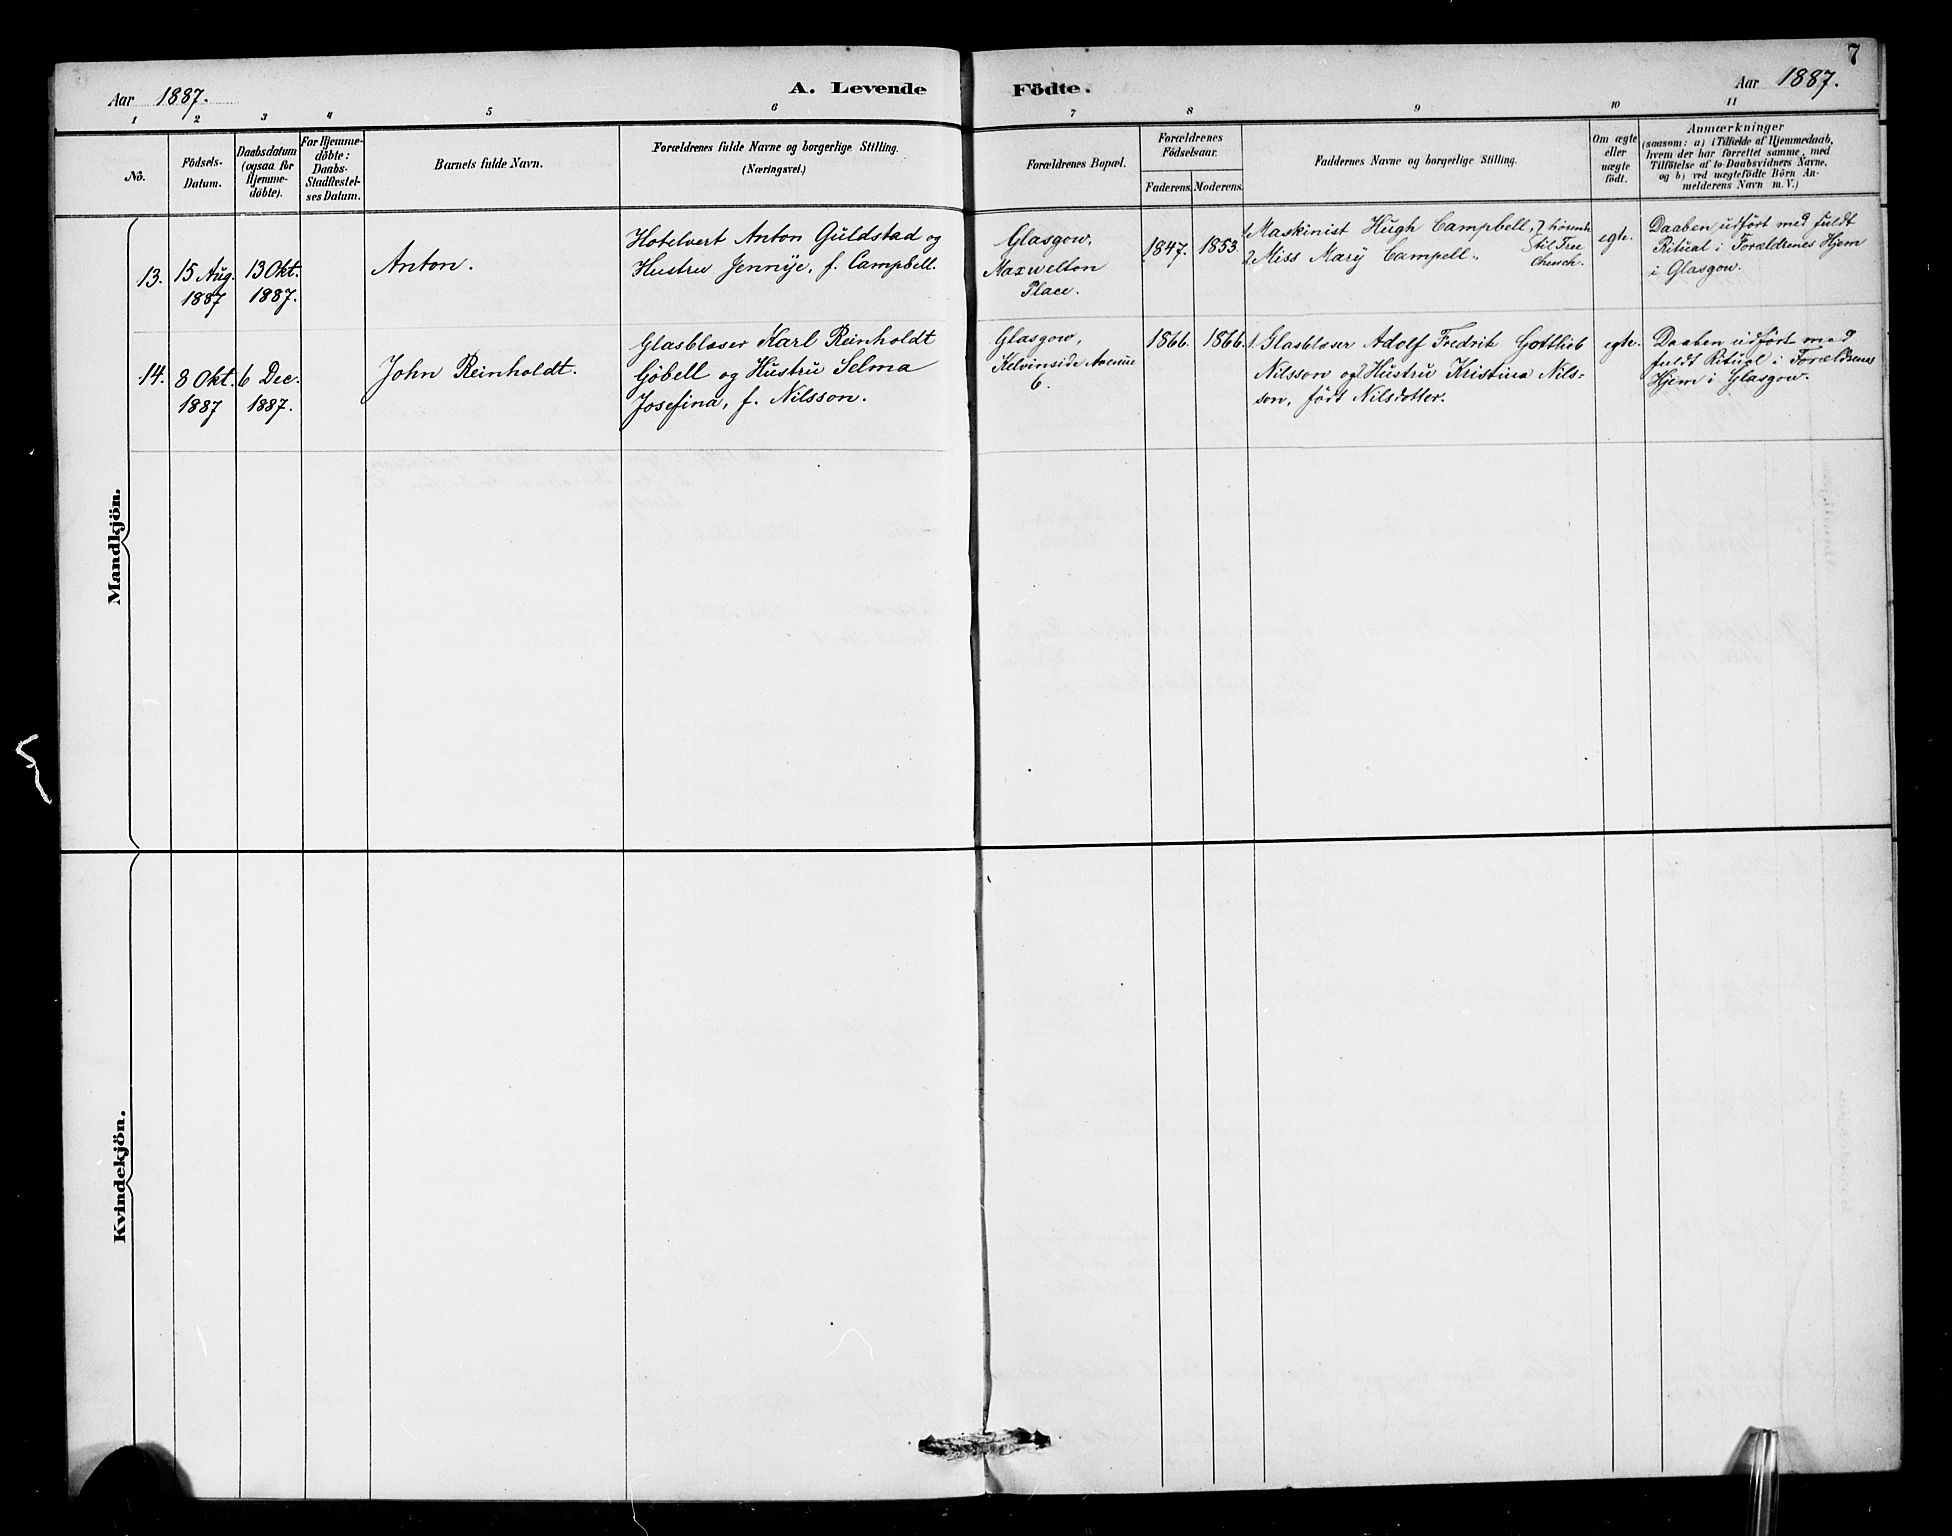 7
Aar 1887.
A. Levende Födte.
Aar 1887.
1 2 3 4 5 6 7 8 9 10 11
No.
Födsels-
Datum.
Daabsdatum
(ogsaa for
Hjemme-
döbte).
For Hjemme-
döbte:
Daabs-
Stadfæstel-
ses Datum.
Barnets fulde Navn.
Forældrenes fulde Navne og borgerlige Stilling.
(Næringsvei.)
Forældrenes Bopæl.
Forældrenes
Födselsaar.
Faderens. Moderens.
Faddernes Navne og borgerlige Stilling.
Om ægte
eller
uægte
født.
Anmærkninger
(saasom: a) i Tilfælde af Hjemmedaab,
hvem der har forrettet samme, med
Tilföielse af to Daabsvidners Navne,
og b) ved uægtefödte Börn An-
melderens Navn m. V.)
Mandkjön.
13.
15 Aug.
1887
13 Okt.
1887.
Anton.
Hotelvert Anton Guldstad og
Hustru Jennÿe, f. Campbell.
Glasgow,
Maxwelton
Place.
1847.
1853.
1. Maskinist Hugh Campbell,
2. Miss Marÿ Campell
til Free
Church.
egte.
Daaben udført med fuldt
Ritual i Forældrenes Hjem
i Glasgow.
14.
8 Okt.
1887
6 Dec.
1887.
John Reinholdt.
Glasblaser Karl Reinholdt
Göbell og Hustru Selma
Josefina, f. Nilsson.
Glasgow,
Kelvinside Avenue
6.
1866.
1866.
1. Glasblaser Adolf Fredrik Gottlieb
Nilsson og 2 Hustru Kristina Nils-
son, født Nilsdotter.
egte.
Daaben udført med
fuldt Ritual i Forældrenes
Hjem i Glasgow.
Kvindekjön.